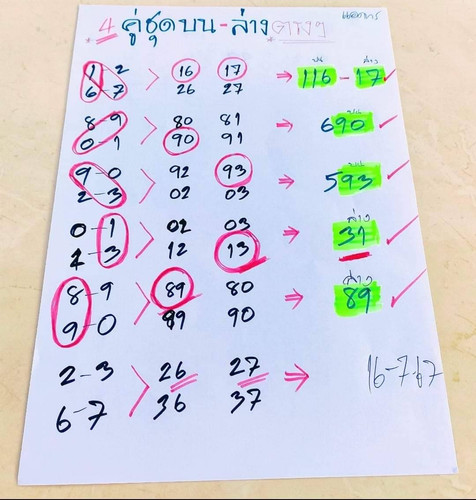 4 คู่ชุดบน-ล่างตรงๆ
บน ล่าง
1 2 16 17 ⇒ 116 - 17
6-7 26 27
8-9 80 81 บน
0-1 90 91 690
9-0 92 93 บน
2-3 02 03 ⇒ 593
0-1 02 03 ล่าง
2-3 12 13 ⇒ 31
8-9 89 80 ล่าง
9-0 99 90 ⇒ 89
2-3 26 27 ⇒ 16-7-67
6-7 36 37